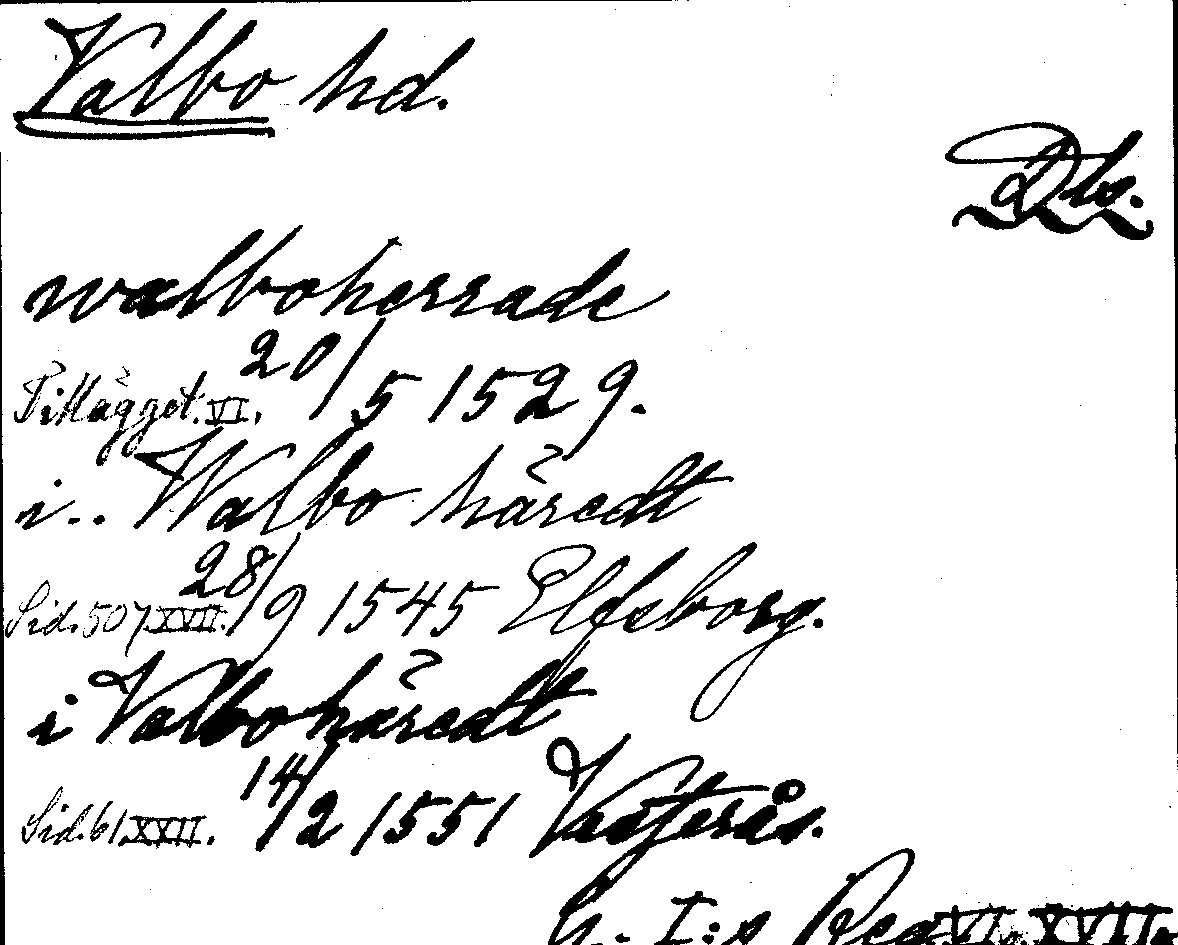 Valbo hd.
Dls.
walboherrade
Tillägget. VI. 20/5 1529.
i.. Walbo häredt
Sid. 507 XVII. 28/9 1545 Elfsborg.
i Valbohäredt
Sid. 61 XXII. 14/2 1551 Vesterås.
G. I:s Reg VI. XVII.